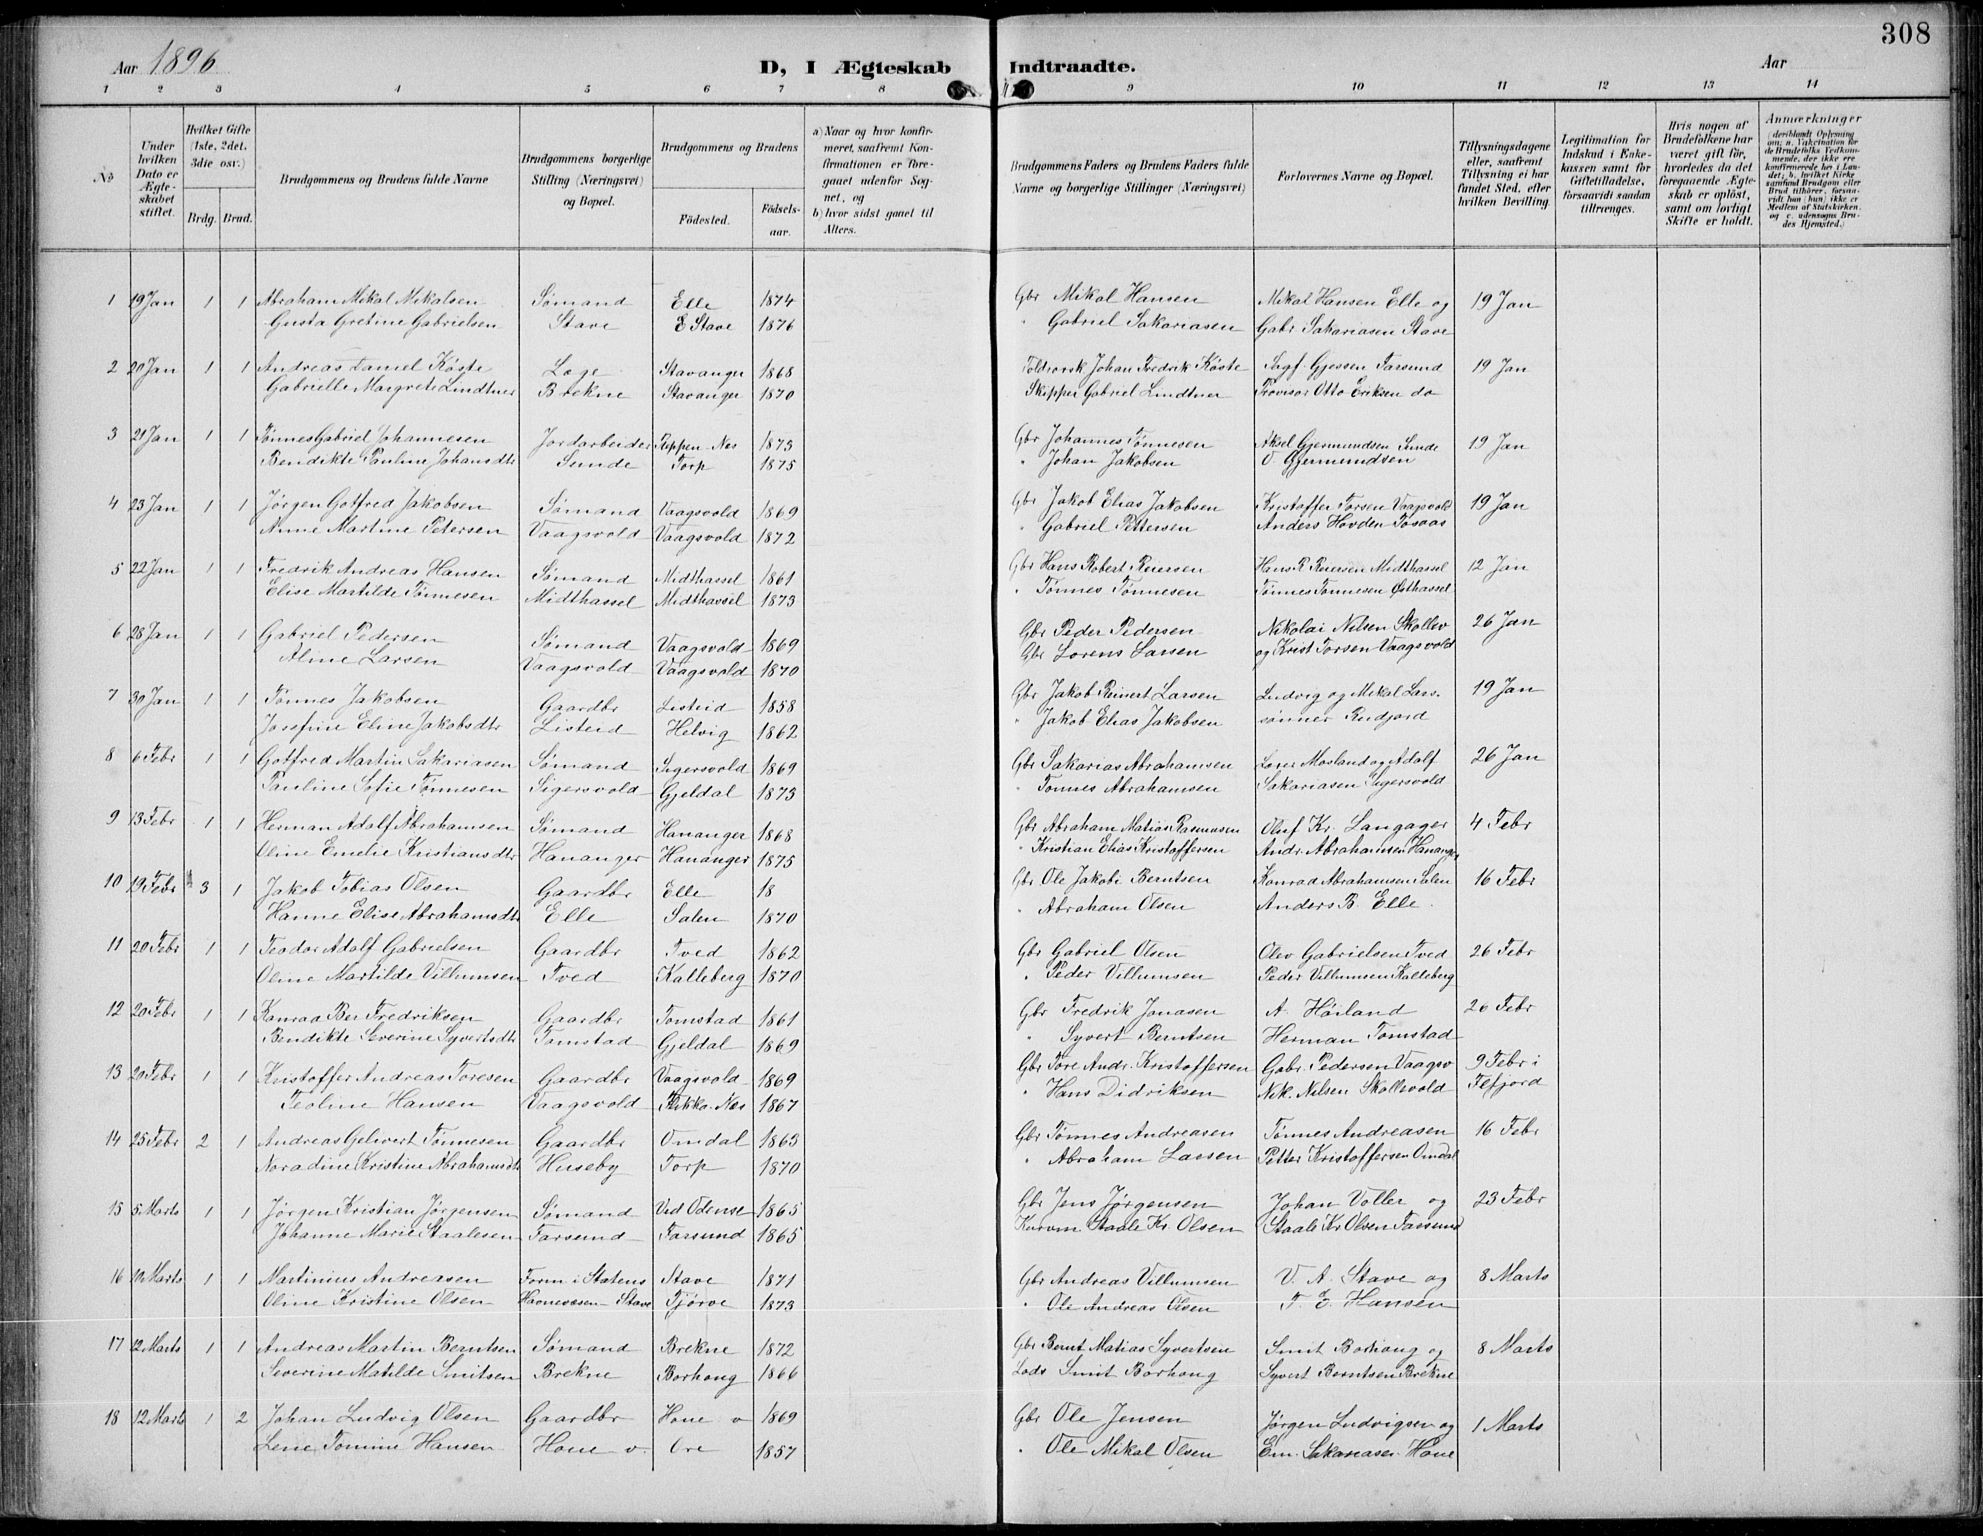 308
Aar 1896
D, I Ægteskab Indtraadte.
Aar
1 2 3 4 5 6 7 8 9 10 11 12 13 14
No
Under hvilken Dato er Ægteskabet stiftet.
Hvilket Gifte (1ste, 2det, 3die osv.)
Brdg. Brud.
Brudgommens og Brudens fulde Navne
Brudgommens borgerlige Stilling (Næringsvei) og Bopæl.
Brudgommens og Brudens
Fødested. Fødselsaar.
a) Naar og hvor konfirmeret, saafremt Konfirmationen er foregaaet udenfor Sognet, og
b) hvor sidst gaaet til Alters.
Brudgommens Faders og Brudens Faders fulde Navne og borgerlige Stillinger (Næringsvei)
Forlovernes Navne og Bopæl.
Tillysningsdagene eller, saafremt Tillysning ei har fundet Sted, efter hvilken Bevilling.
Legitimation for Indskud i Enkekassen samt for Giftetilladelse, forsaavidt saadan tiltrænges.
Hvis nogen af Brudefolkene har været gift før, hvorledes da det foregaaende Ægteskab er opløst, samt om lovligt Skifte er holdt.
Anmærkninger
(deriblandt Oplysning om; a. Vakcination for de Brudefolks Vedkommende, der ikke ere konfirmerede her i Landet; b. hvilket Kirkesamfund Brudgom eller Brud tilhører, forsavidt han (hun) ikke er Medlem af Statskirken, og c. udensogns Brudes Hjemsted.)
1 19 Jan 1 1 Abraham Mikal Mikalsen Sømand Elle 1874 Gbr Mikal Hansen Mikal Hansen Elle og 19 Jan
Gusta Gretine Gabrielsen Stave E Stave 1876 " Gabriel Sakariasen Gabr Sakariasen Stave
2 20 Jan 1 1 Andreas Daniel Köste Læge Stavanger 1868 Johan Fredrik Köste Sagf. Gjessen Farsund 19 Jan
Gabrielle Margrete Lindtner Brekne Stavanger 1870 Skipper Gabriel Lindtner Provisor Otto Eriksen do
3 21 Jan 1 1 Tønnes Gabriel Johannesen Jordarbeider Nes 1873 Gbr Johannes Tønnesen Aksel Gjermundsen Sunde 19 Jan
Bendikte Pauline Johansdtr Sunde Torp 1875 " Johan Jakobsen O Gjermundsen
4 23 Jan 1 1 Jørgen Gotfred Jakobsen Sømand Vaagsvold 1869 Gbr Jakob Elias Jakobsen Kristoffer Torsen Vaagsvold 19 Jan
Anne Martine Petersen Vaagsvold Vaagsvold 1872 " Gabriel Pettersen Anders Hovden Tosaas
5 22 Jan 1 1 Fredrik Andreas Hansen Sømand Midthassel 1861 Gbr Hans Robert Reiersen Hans R Reiersen Midthassel 12 Jan
Elise Martilde Tønnesen Midthassel Midthassel 1873 " Tønnes Tønnesen Tønnes Tønnesen Østhassel
6 28 Jan 1 1 Gabriel Pedersen Sømand Vaagsvold 1869 Gbr Peder Pedersen Nikolai Nilsen Skollev 26 Jan
Aline Larsen Vaagsvold Vaagsvold 1870 Gbr Lorens Larsen og Krist Torsen Vaagsvold
7 30 Jan 1 1 Tønnes Jakobsen Gaardbr Listeid 1858 Gbr Jakob Reinert Larsen Ludvig og Mikal Lars- 19 Jan
Josefine Eline Jakobsdtr Listeid Helvig 1862 " Jakob Elias Jakobsen sønner Rudjord
8 6 Febr 1 1 Gotfred Martin Sakariasen Sømand Sigersvold 1869 Gbr Sakarias Abrahamsen Mosland og Adolf 26 Jan
Pauline Sofie Tønnesen Sigersvold Gjeldal 1873 " Tønnes Abrahamsen Sakariasen Sigersvold
9 13 Febr 1 1 Herman Adolf Abrahamsen Sømand Hananger 1868 Gbr Abraham Matias Rasmusen Oluf Kr. Langager 4 Febr
Oline Emelie Kristiansdtr Hananger Hananger 1875 " Kristian Elias Kristoffersen Andr. Abrahamsen Hananger
10 19 Febr 3 1 Jakob Tobias Olsen Gaardbr Elle 18 Gbr Ole Jakobi Berntsen Konrad Abrahamsen Salen 16 Febr
Hanne Elise Abrahamsdtr Elle Salen 1870 " Abraham Olsen Anders B. Elle.
11 20 Febr 1 1 Teodor Adolf Gabrielsen Gaardbr Tved 1862 Gbr Gabriel Olsen Olev Gabrielsen Tved 26 Febr
Oline Martilde Villumsen Tved Kalleberg 1870 " Peder Villumsen Peder Villumsen Kalleberg
12 20 Febr 1 1 Konrad Ber Fredriksen Gaardbr Tomstad 1861 Gbr Fredrik Jonasen A. Höiland 26 Febr
Bendikte Severine Syvertsdtr Tomstad Gjeldal 1869 " Syvert Berntsen Herman Tomstad
13 20 Febr 1 1 Kristoffer Andreas Toresen Gaardbr Vaagsvold 1869 Gbr Tore Andr. Kristoffersen Gabr. Pedersen Vaagsv 9 Febr i
Teoline Hansen Vaagsvold Nes 1867 " Hans Didriksen Nik. Nilsen Skollevold Fefjord
14 25 Febr 2 1 Andreas Gelivert Tønnesen Gaardbr Omdal 1863 Gbr Tønnes Andreasen Tønnes Andreasen 16 Febr
Noradine Kristine Abrahamsdtr Huseby Torp 1870 " Abraham Larsen Petter Kristoffersen Omdal
15 5 Marts 1 1 Jørgen Kristian Jørgensen Sømand Ved Odense 1865 Gbr Jens Jørgensen Johan Voller og 23 Febr
Johanne Marie Staalesen Farsund Farsund 1865 Staale Kr. Olsen Staale Kr Olsen Farsund
16 10 Marts 1 1 Martinius Andreasen Form i Statens Stave 1871 Gbr Andreas Villumsen V. A. Stave og 8 Marts
Oline Kristine Olsen Havnevæsen Stave Tjørve 1873 " Ole Andreas Olsen T. E. Hansen
17 12 Marts 1 1 Andreas Martin Berntsen Sømand Brekne 1872 Gbr Bernt Matias Syvertsen Smit Borhong og 8 Marts
Severine Matilde Smitsen Brekne Borhong 1866 Lods Smit Borhong Syvert Berntsen Brekne
18 12 Marts 1 2 Johan Ludvig Olsen Gaardbr Hone v 1869 Gbr Ole Jensen Jørgen Ludvigsen og 1 Marts
Lene Tomine Hansen Hone v. Ore 1857 " Ole Mikal Olsen Em. Sakariasen Hone